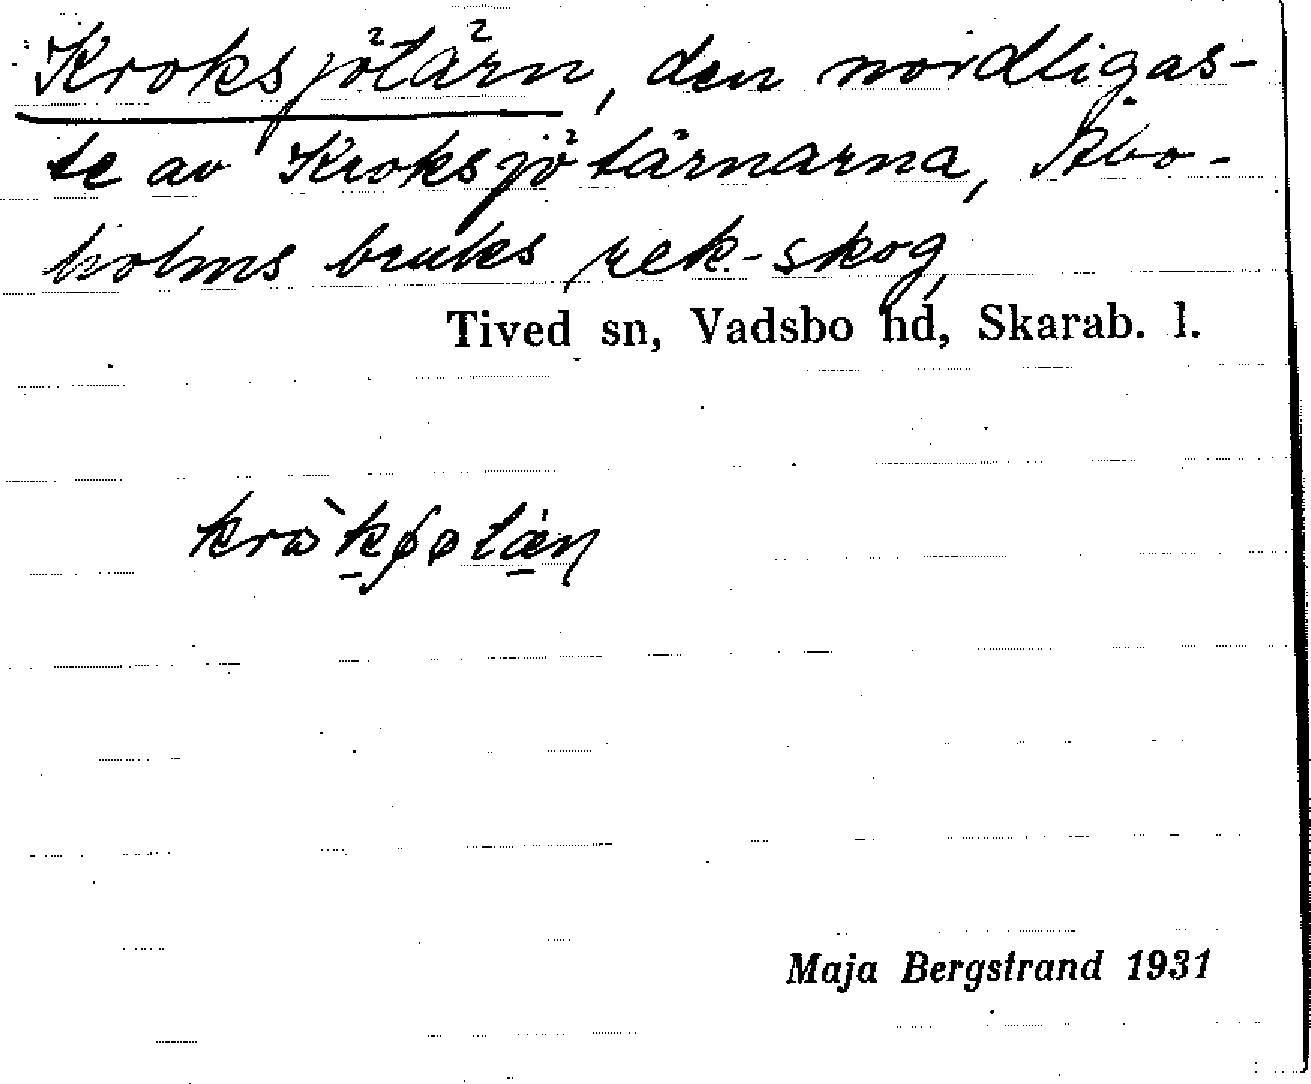 Kroksjötärn, den nordligas-
te av Kroksjötärnarna, Abo-
holms bruks rek.-skog,
Tived sn, Vadsbo hd, Skarab. l.
Maja Bergstrand 1931